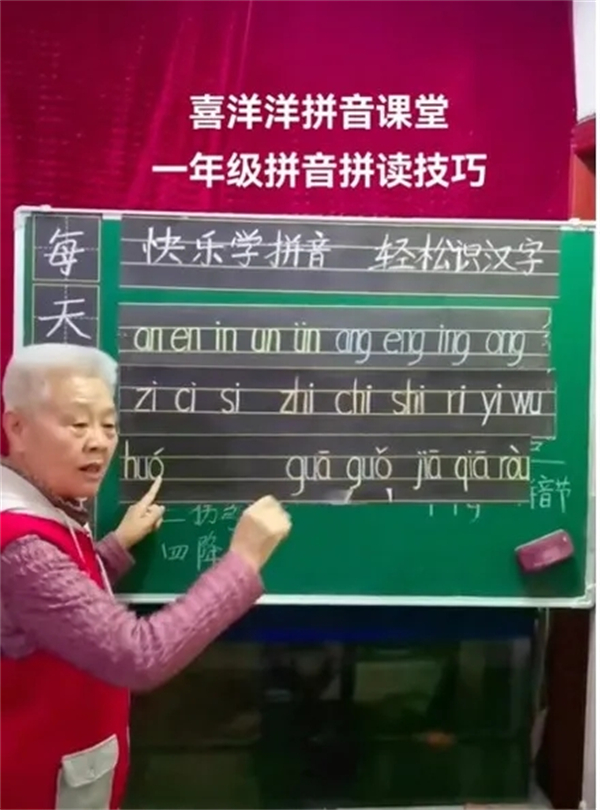 喜洋洋拼音课堂
一年级拼音拼读技巧
每天
快乐学拼音 轻松识汉字
an en in un ün ang eng ing ong
zi ci si zhi chi shi ri yi wu
huó guā guǒ jiā qiā
四降
音节